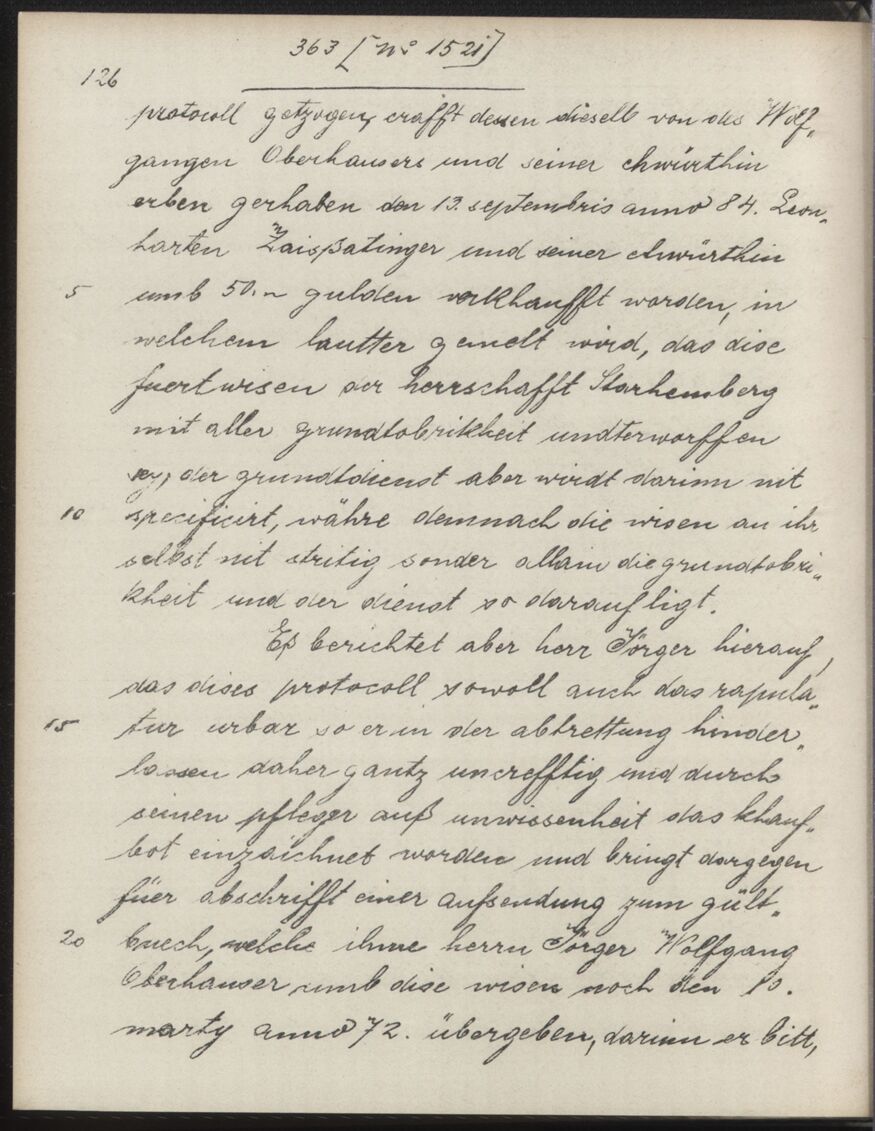 363 [No 1521]
126
protocoll getzogen, crafft dessen dieselb von des Wolf„
gangen Oberhausers und seiner ehwürthin
erben gerhaben den 13. septembris anno 84. Leon„
harten Zaisßatinger und seiner ehwürthin
5 umb 50.n gulden verkhaufft worden, in
welchem lautter gemelt wird, das dise
fuertwisen der herrschafft Starhemberg
mit aller grundtobrikheit undterworffen
sey, der grundtdienst aber wirdt darinn nit
10 specificirt, währe demnach die wisen an ihr
selbst nit stritig sonder allain die grundtobri„
kheit und der dienst so darauf ligt.
Eß berichtet aber herr Jörger hierauf,
das dises protocoll sowoll auch das rapula„
15 tur urbar so er in der abtrettung hinder„
lassen daher gantz uncrefftig und durch
seinen pfleger auß unwissenheit das khauf„
bot einzaichnet worden und bringt dargegen
füer abschrifft einer aufsendung zum gült„
20 buech, welche ihme herrn Jörger Wolfgang
Oberhauser umb dise wisen noch den 10.
marty anno 72. übergeben, darinn er bitt,